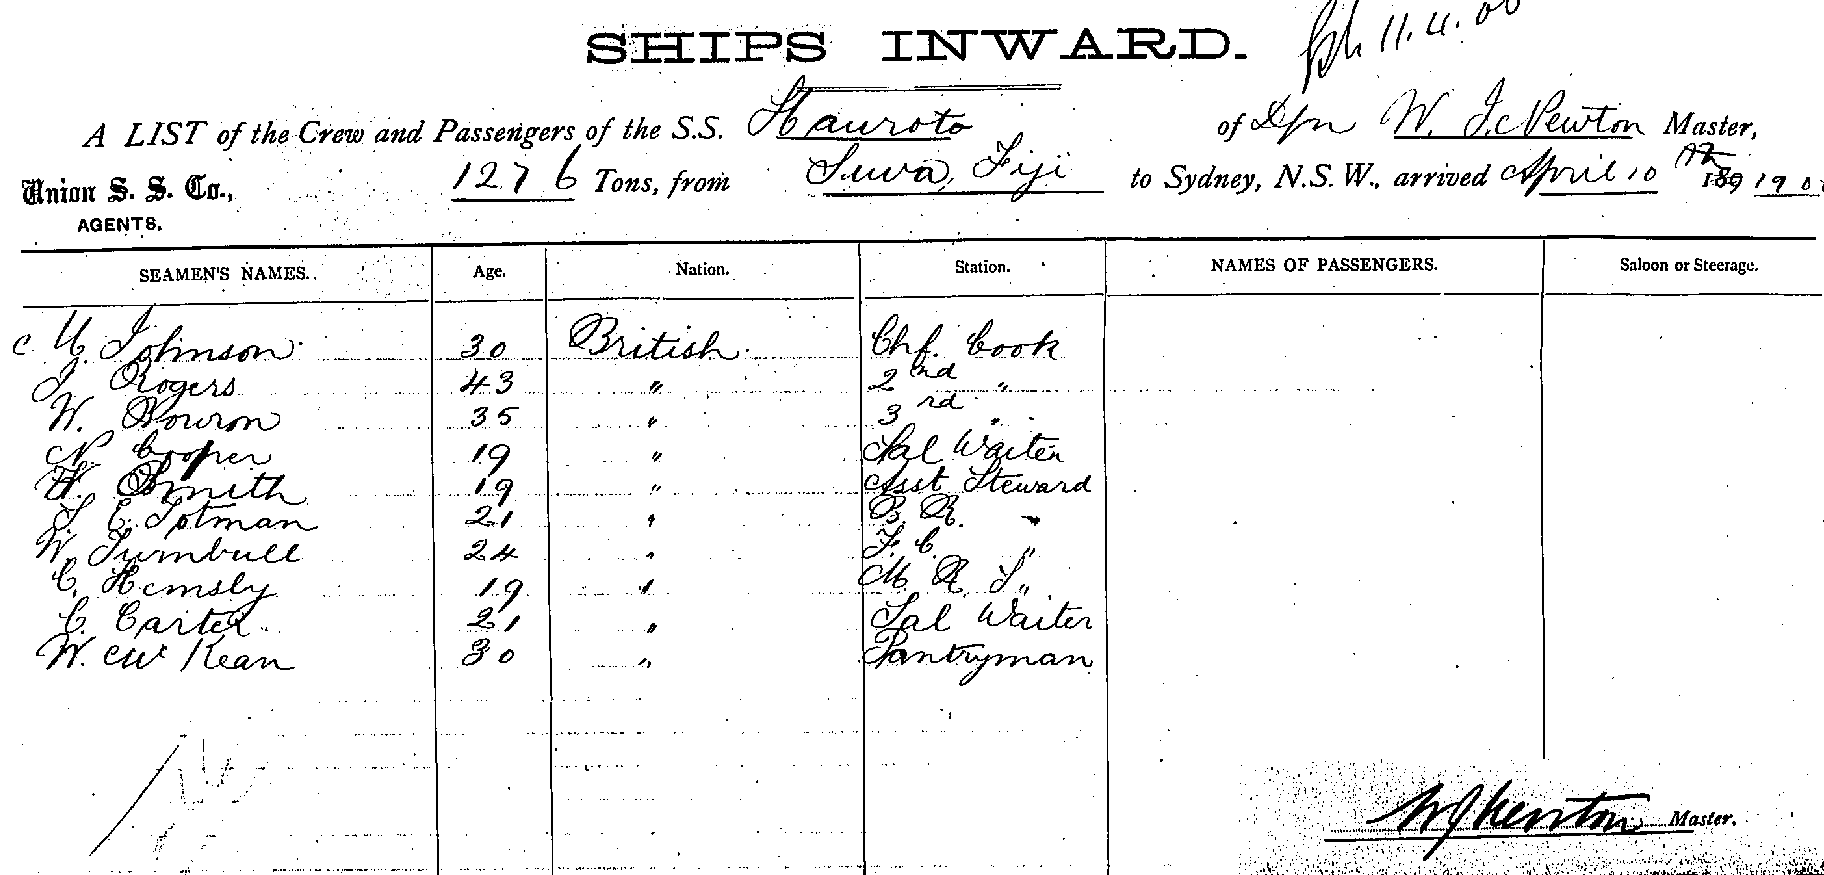 SHIPS INWARD.
11.4.00
A LIST of the Crew and Passengers of the S.S. Hauroto of Dpn W. J. Newton Master,
Union S. S. Co., 1276 Tons, from Suva, Fiji to Sydney, N.S.W., arrived April 10th 189 1900
AGENTS.
SEAMEN'S NAMES. Age. Nation. Station. NAMES OF PASSENGERS. Saloon or Steerage.
Johnson 30 British Chf. Cook
J. Rogers 43 " 2nd "
W. Bowron 35 " 3rd "
N. Cooper 19 " Sal Waiter
Smith 19 " Asst Steward
Totman 21 " B. R. "
W. Turnbull 24 " F. C. "
C. Hemsby 19 " M. R. S "
C. Carter 21 " Sal Waiter
W. Mc Kean 30 " Pantryman
WJ Newton Master.